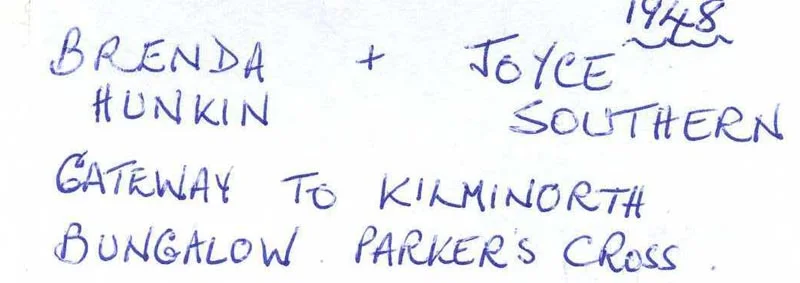 1948
BRENDA + JOYCE
HUNKIN SOUTHERN
GATEWAY TO KILMINORTH
BUNGALOW PARKER'S CROSS.